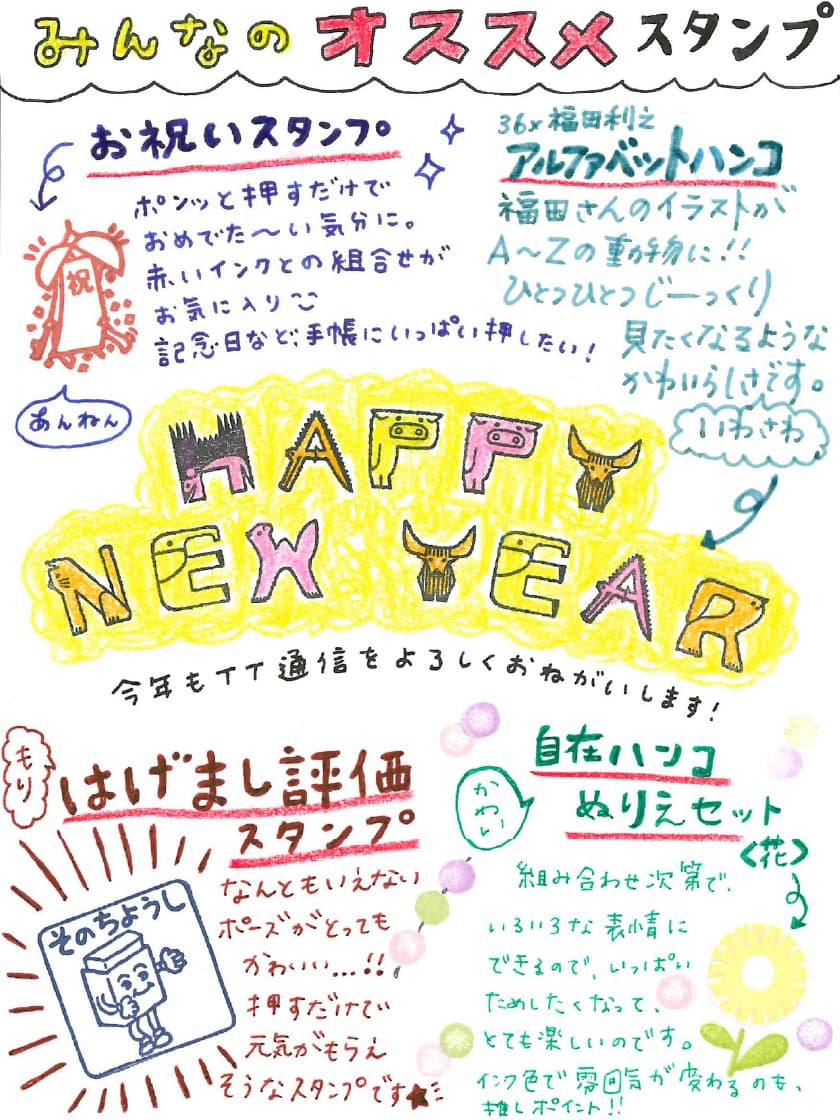 みんなのオススメスタンプ
お祝いスタンプ
ポンッと押すだけで
おめでた〜い気分に。
赤いインクとの組合せが
お気に入り
記念日など、手帳にいっぱい押したい!
祝
あんねん
36×福田利之
アルファベットハンコ
福田さんのイラストが
A〜Zの動物に!!
ひとつひとつじーっくり
見たくなるような
かわいらしさです。
いわさわ
HAPPY
NEW YEAR
今年もTT通信をよろしくおねがいします!
もり
はげまし評価
スタンプ
なんともいえない
ポーズがとっても
かわいい...!!
押すだけで
元気がもらえ
そうなスタンプです★
そのちょうし
自在ハンコ
ぬりえセット
<花>
かわい
組み合わせ次第で、
いろいろな表情に
できるので、いっぱい
ためしたくなって、
とても楽しいのです。
インク色で雰囲気が変わるのも、
推しポイント!!